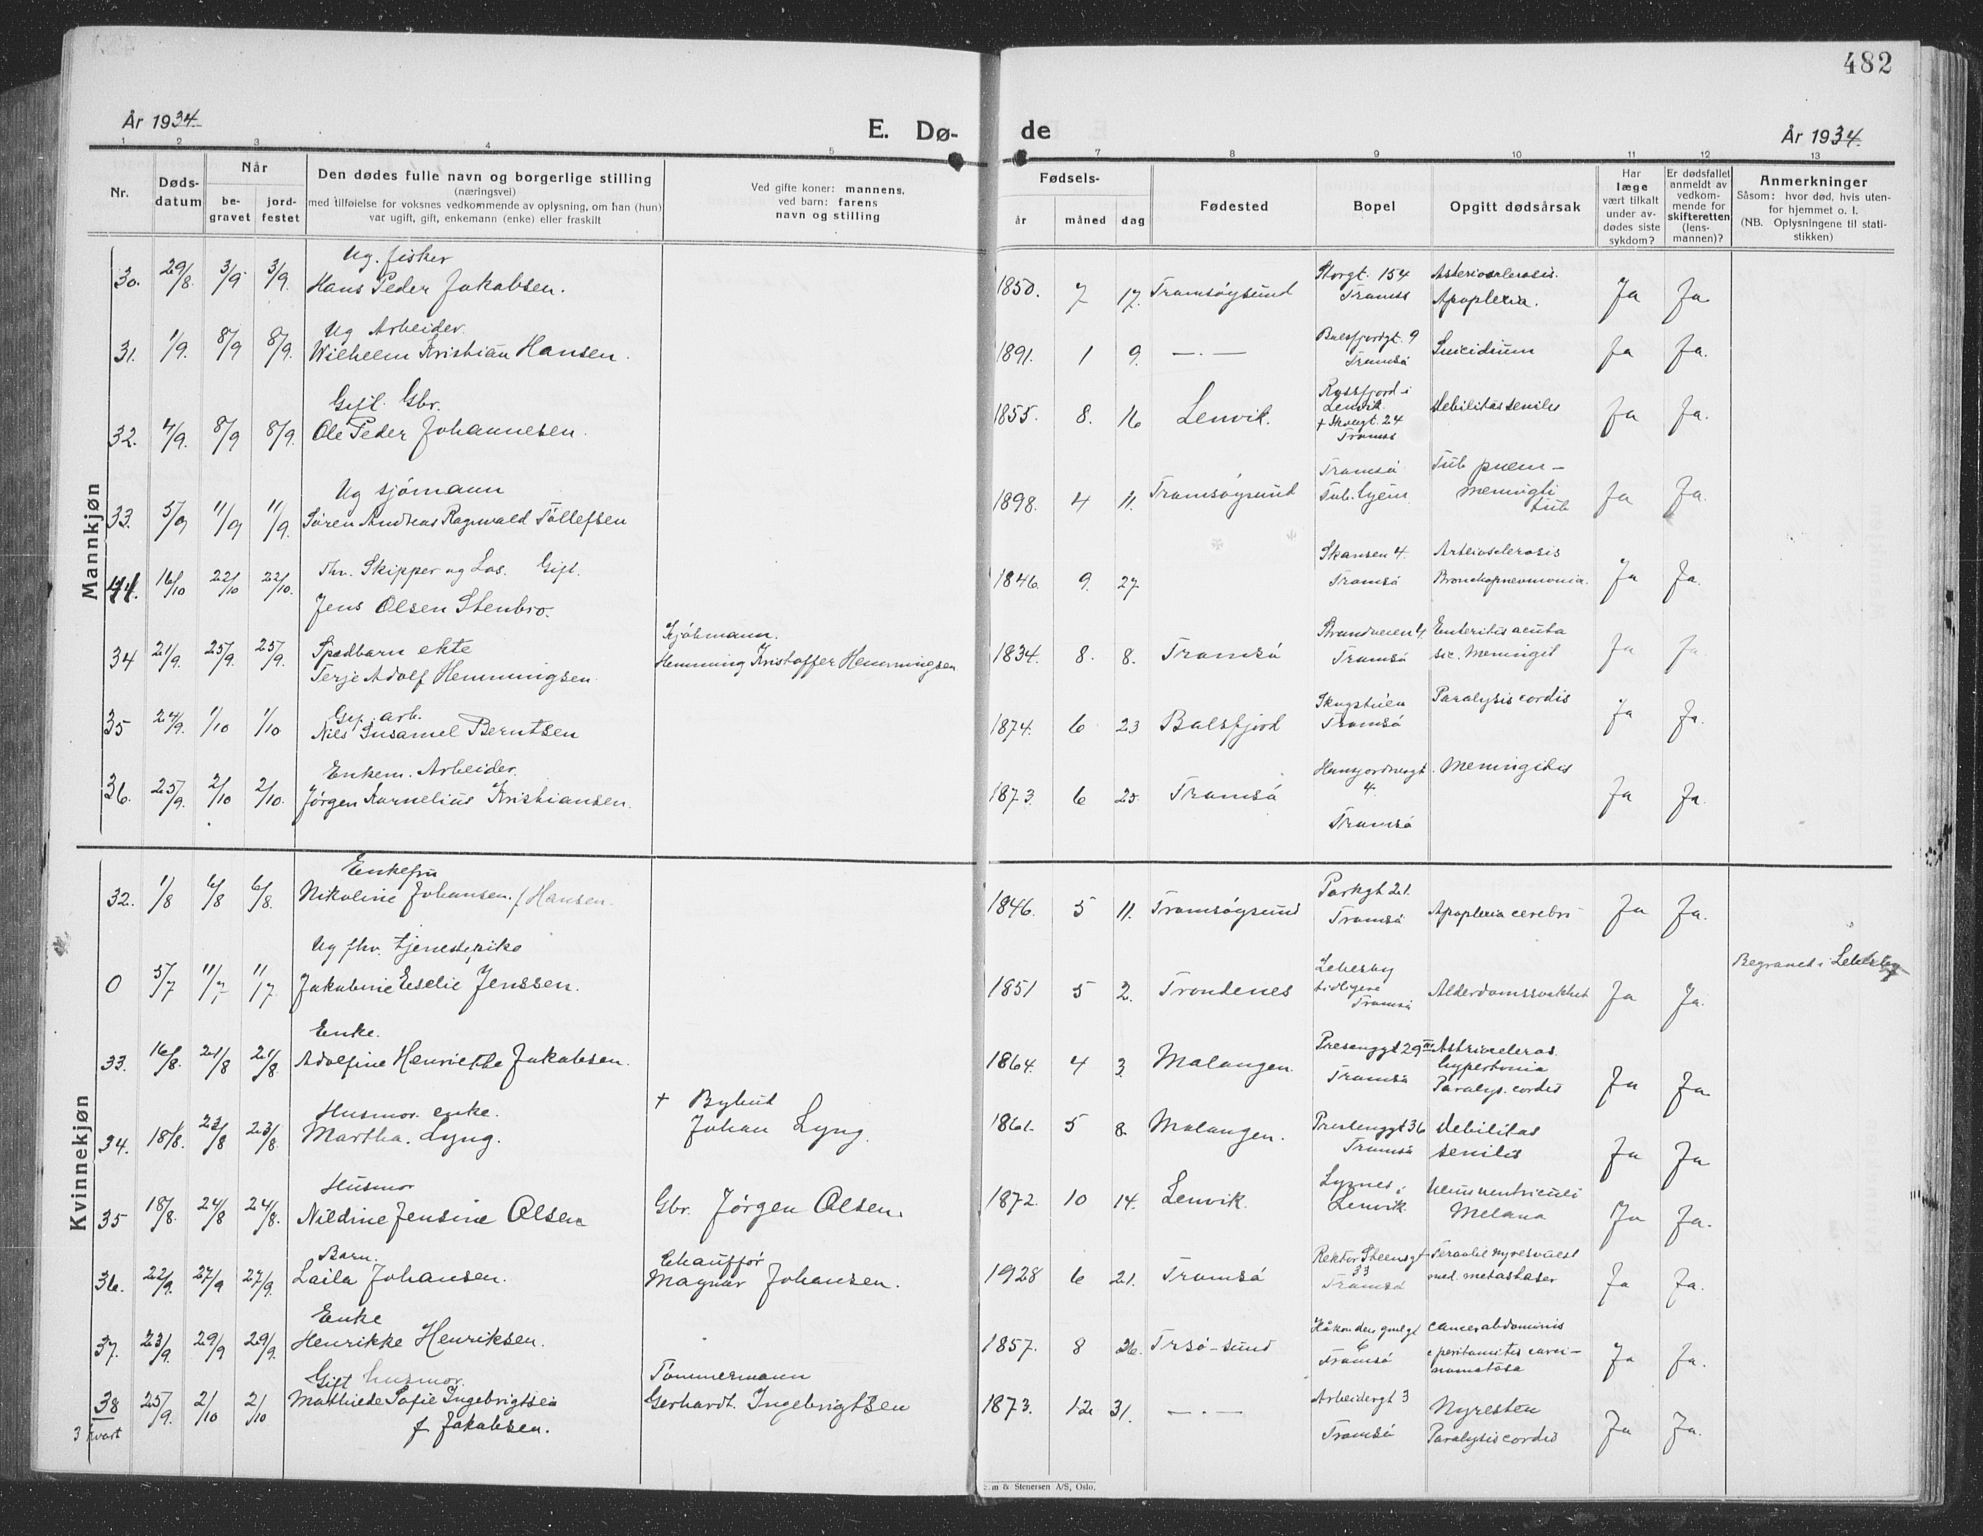 482
År 1934
E. Dø-
de
År 1934.
1 2 3 4 5 7 8 9 10 11 12 13
Nr.
Døds-
datum
Når
be-
gravet
jord-
festet
Den dødes fulle navn og borgerlige stilling
(næringsvei)
med tilføielse for voksnes vedkommende av oplysning, om han (hun)
var ugift, gift, enkemann (enke) eller fraskilt
Ved gifte koner: mannens,
ved barn: farens
navn og stilling
Fødsels-
år måned dag
Fødested
Bopel
Opgitt dødsårsak
Har
læge
vært tilkalt
under av-
dødes siste
sykdom?
Er dødsfallet
anmeldt av
vedkom-
mende for
skifteretten
(lens-
mannen)?
Anmerkninger
Såsom: hvor død, hvis uten-
for hjemmet o. l.
(NB. Oplysningene til stati-
stikken)
Mannkjøn
Ug. fisker
30. 29/8 3/9 3/9 Hans Peder Jakobsen. 1850. 7 17. Tromsøysund Storgt. 154 Tromsø Apoplexia. Ja Ja
Ug Arbeider.
31. 1/9. 8/9 8/9. Wilhelm Kristian Hansen. 1891. 1 9. —.— Balsfjordgt. 9 Tromsø Suicidium Ja Ja.
Gift. Gbr.
32. 4/9. 8/9 8/9. Ole Peder Johannesen. 1855. 8. 16 Lenvik. Lenvik + 24 Tromsø Debilitas senilis Ja Ja.
Ug sjømann
33. 5/9 11/9 11/9. Søren Andreas Ragnvald Tollefsen 1898. 4 11. Tromsøysund Tromsø Tub. hjem. Tub pneum- meningti tub Ja Ja.
Fhv. Skipper og Los. Gift.
44. 16/10 22/10 22/10. Jens Olsen Stenbro. 1846. 9. 27 Skansen 4. Tromsø Arteiosclerosis Bronchopneumonia. Ja Ja.
Spedbarn ekte Sjåbmann.
34 21/9. 25/9. 25/9. Terje Adolf Hemmingsen Hemming Kristoffer Hemmingsen 1834. 8. 8. Tromsø Strandveien 4. Tromsø Enteritis acuta sic. Meningit Ja Ja.
Gep. arb.
35 24/9. 1/10 1/10 Nils Insamel Berntsen 1874. 6 23 Balsfjord Tromsø Paralysis cordis Ja Ja.
Enkem. Arbeider.
36. 25/9. 2/10 2/10. Jørgen Kornelius Kristiansen. 1873. 6 25. Tromsø 4. Tromsø Meningitis Ja Ja.
Kvinnekjøn
Enkefru
32. 1/8 6/8 6/8. Nikoline Johansen. f Hansen. 1846. 5 11. Tromsøysund Parkgt 21. Tromsø Apoplexia cerebri Ja Ja.
Ug fhv. tjenestepike
0 5/7 11/7 11/7. Jakobine Eselie Jenssen. 1851 5 2. Trondenes Lebesby tidligere Tromsø Alderdomssvakhet Ja Ja. Begravet i Lebesby
Enke.
33. 16/8. 21/8 21/8. Adolfine Henriette Jakobsen. 1864. 4 3. Malangen. 29 III Tromsø hypertonia Paralys. cordis Ja Ja
Husmor. enke. + Bybud
34. 18/8. 23/8 23/8. Martha. Lyng. Johan Lyng. 1861. 5 8. Malangen. 36 Tromsø Debilitas senilis Ja Ja
Husmor
35 18/8. 24/8 24/8. Nildine Jensine Olsen Gbr. Jørgen Olsen. 1872. 10 14. Lenvik. Lysnes i Lenvik Ulcus ventriculi Melana Ja Ja.
Barn. Chauffør
36. 22/9. 27/9 27/9. Laila Johansen. Magnar Johansen. 1928 6 21. Tromsø Rektor Steensgt 33 Tromsø nyresvulst med. metastaser Ja Ja.
Enke
37. 23/9. 29/9 29/9. Henrikke Henriksen. 1857. 8 26. Trsø-sund Håkon den gmlegt 6 Tromsø cancer abdominis c peritonitis carci- nomatosa Ja Ja.
Gift husmor. Tømmermann
38 25/9. 2/10 2/10 Mathilde Sofie Ingebrigtsen Gerhardt. Ingebrigtsen 1873. 12 31. —.— Arbeidergt 3 Tromsø Nyresten Paralysis cordis Ja Ja.
f Jakobsen.
3 kvart
& Stenersen A/S, Oslo.